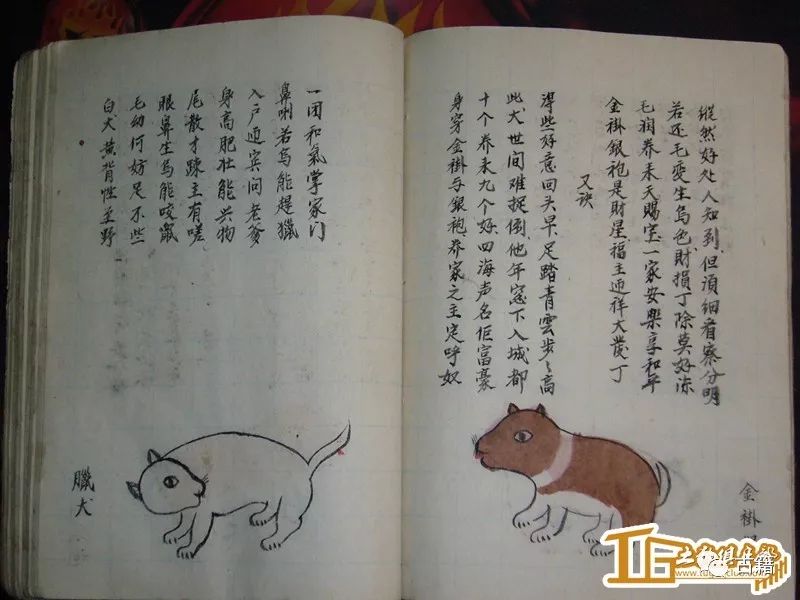 縱然好处人知到但須细看察分明
若还毛变生乌色財損丁除莫好
毛润养来天賜宝一家安樂享和平
金褂銀袍是財星福主迎祥大發丁
又诀
得些好意回头早足踏青雲步々高
此犬世间难捉倒他年寃下入城都
十个养来九个好四海声名佢富豪
身穿金褂与銀袍养家之主定呼奴
金褂
一团和氣掌家门
鼻唎若乌能趕獵
入户迎宾问老爹
身高肥壮能兴物
尾散才踈主有嗟
眼鼻生乌能咬鼠
毛幼何妨足不些
白犬黄背性至野
臘犬
古籍